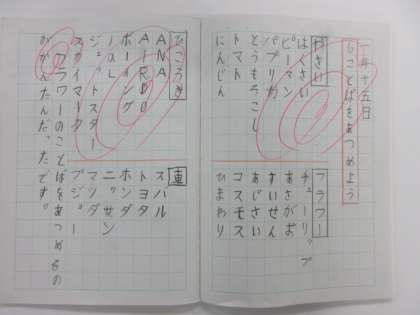 一月十五日
ことばをあつめよう
やさい
はくさい
ピーマン
パプリカ
とうもろこし
トマト
にんじん
フラワー
チューリップ
あさがお
すいせん
あじさい
コスモス
ひまわり
ひこうき
ANA
AIRDO
ボーイング
JAL
ジェットスター
スカイマーク
車
スバル
トヨタ
ホンダ
ニッサン
マツダ
プジョー
フラワーのことばをあつめるの
がかんたんだったです。